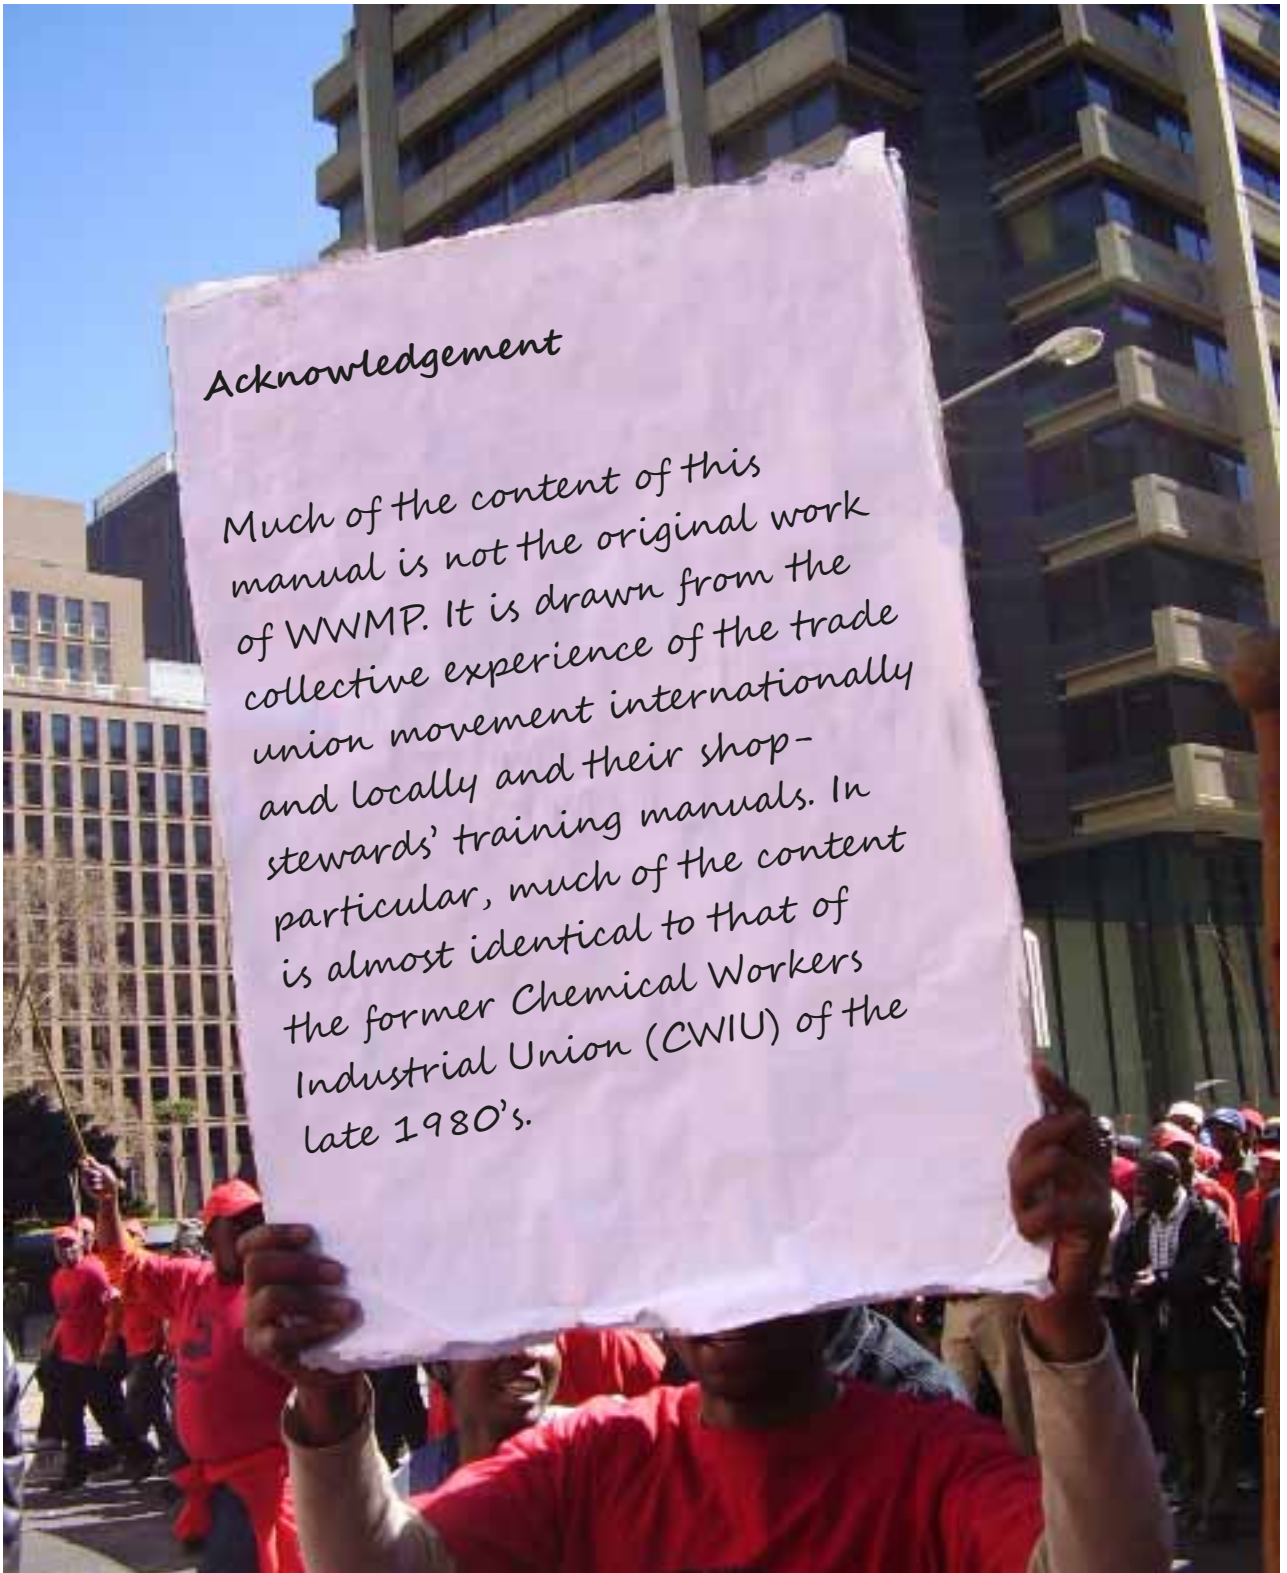 Acknowledgement
Much of the content of this
manual is not the original work
of WWMP. It is drawn from the
collective experience of the trade
union movement internationally
and locally and their shop-
stewards' training manuals. In
particular, much of the content
is almost identical to that of
the former Chemical Workers
Industrial Union (CWIU) of the
late 1980's.